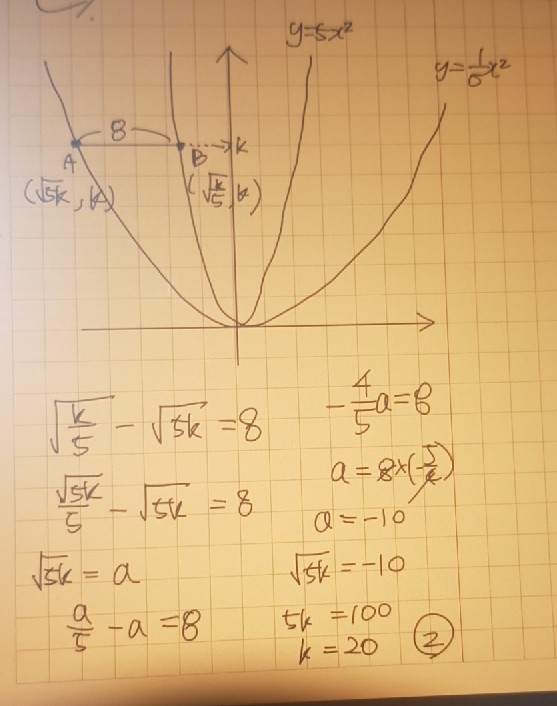 y=5x²
y=\frac{1}{5}x²
8
A
B
k
(√5k, k)
(√\frac{k}{5}, k)
√\frac{k}{5} - √5k = 8
\frac{√5k}{5} - √5k = 8
√5k = a
\frac{a}{5} - a = 8
-\frac{4}{5}a = 8
a = 8×(-\frac{5}{4})
a = -10
√5k = -10
5k = 100
k = 20
②